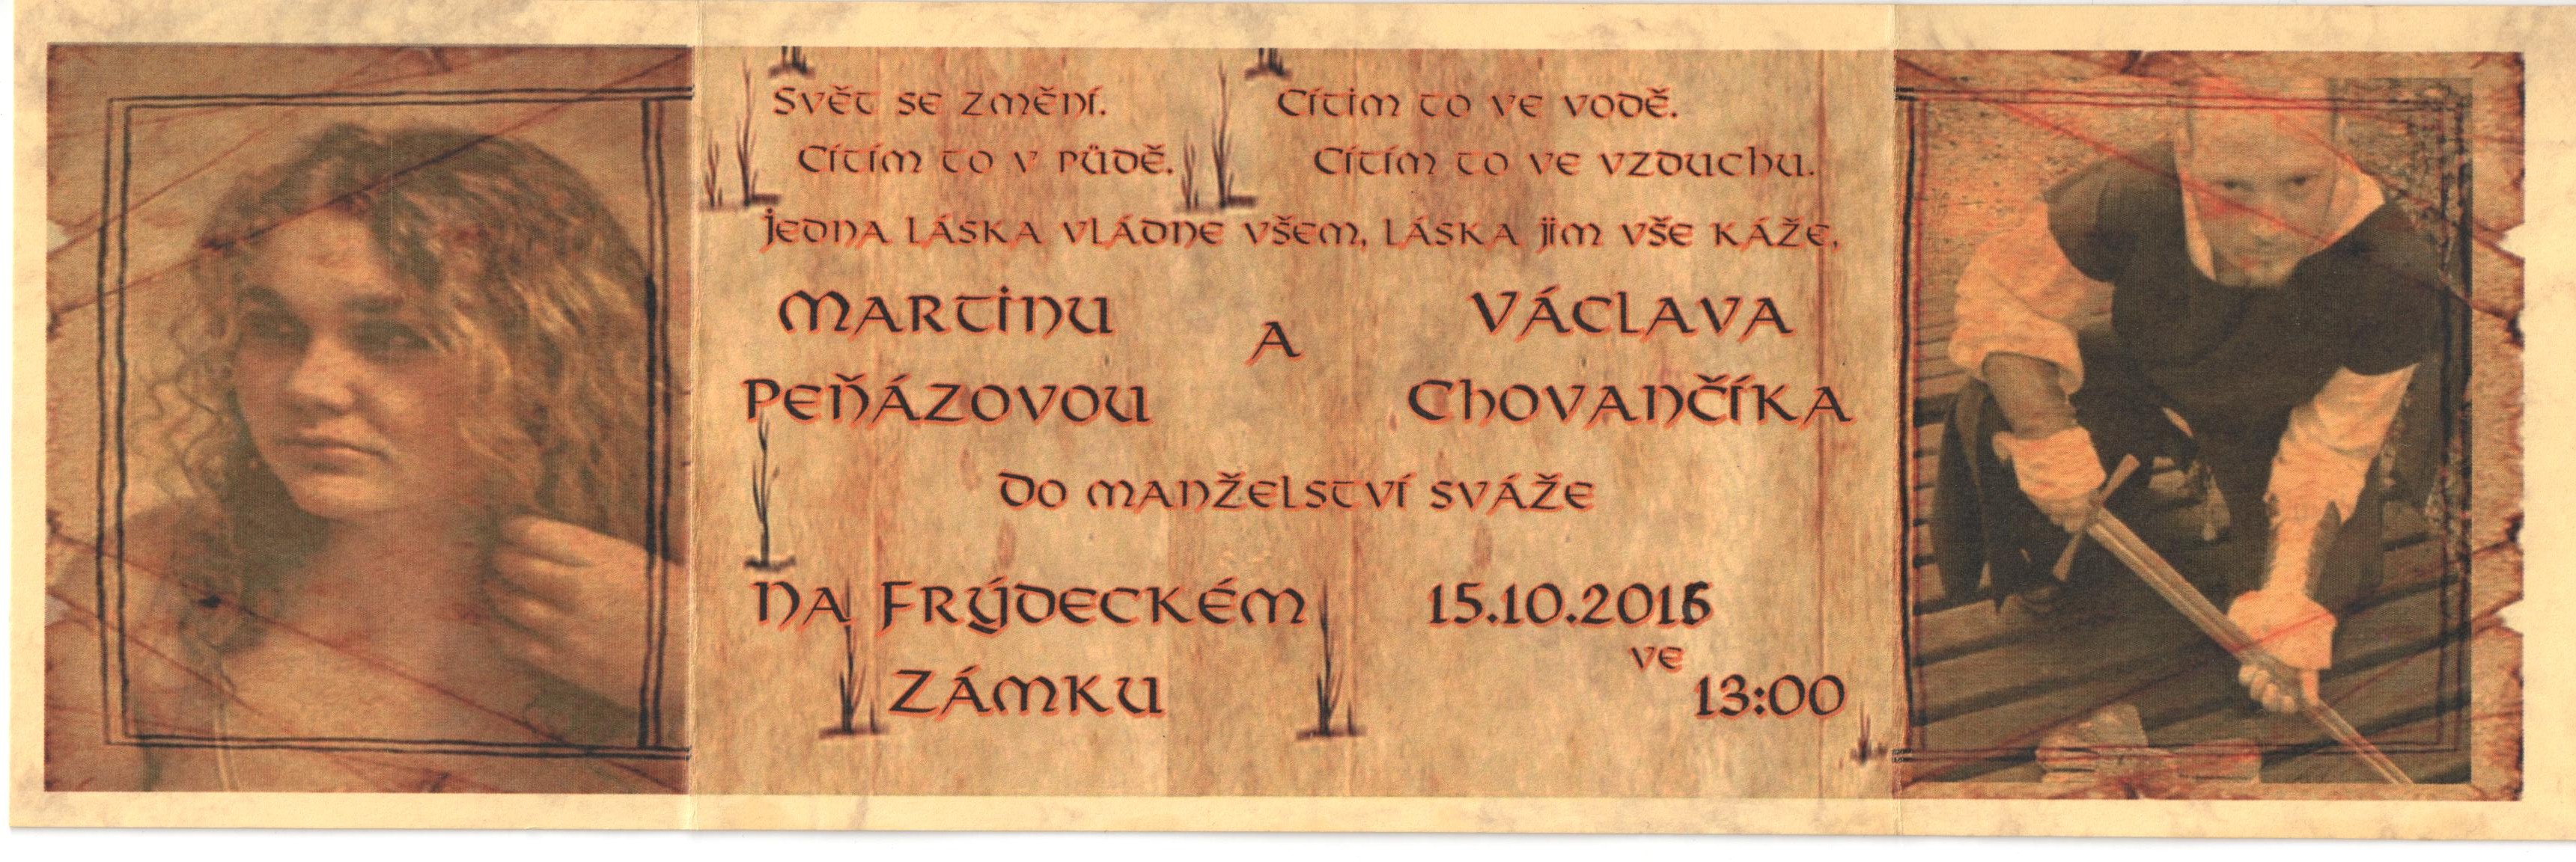 Svět se změní.
Cítím to v půdě.
Cítim to ve vodě.
Cítím to ve vzduchu.
jedna láska vládne všem, láska jim vše káže,
Martinu
Peňázovou
a
Václava
Chovančíka
do manželství sváže
Na Frýdeckém
Zámku
15.10.2016
ve
13:00